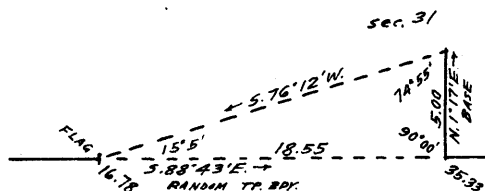 sec. 31
S.76°12'W.
74°55'
5.00
N.1°17'E.
BASE
FLAG
15°5'
18.55
90°00'
S.88°43'E.
16.78
RANDOM TP. BDY.
35.33